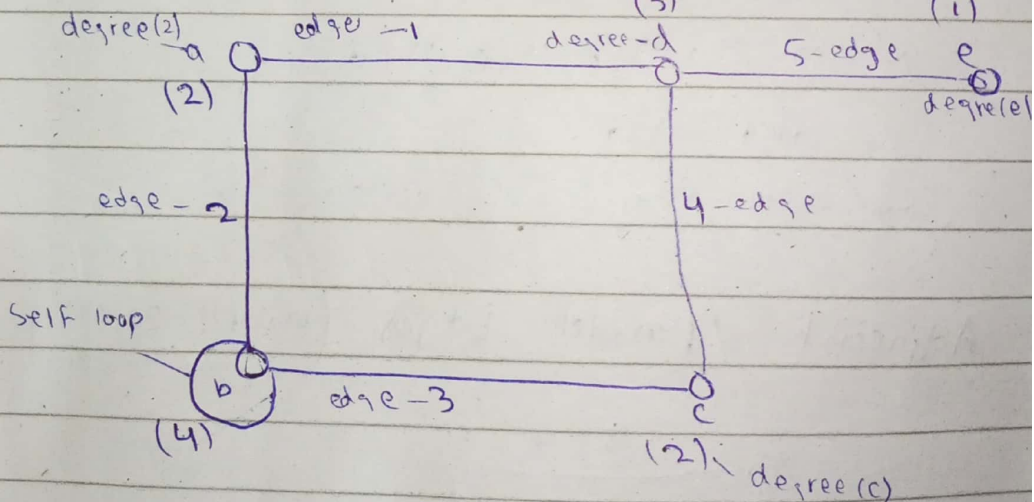 (3)
(1)
degree(2)
edge -1
degree-d
5-edge
e
a
(2)
degre(e)
edge - 2
4-edge
Self loop
b
edge-3
c
(4)
(2)
degree (c)